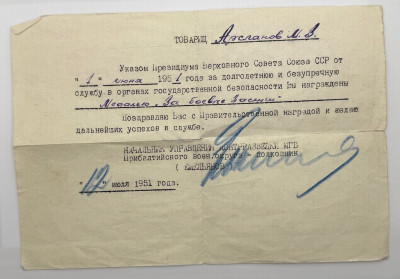 ТОВАРИЩ Арсланов М.В.
Указом Президиума Верховного Совета Союза ССР от
"1" июня 1951 года за долголетнюю и безупречную
службу в органах государственной безопасности Вы награждены
Медалью "За боевые Заслуги"
Поздравляю Вас с Правительственной наградой и желаю
дальнейших успехов в службе.
НАЧАЛЬНИК УПРАВЛЕНИЯ КОНТРРАЗВЕДКИ МГБ
Прибалтийского Воен.округа - полковник
( ЕМЕЛЬЯНОВ )
"12" июля 1951 года.